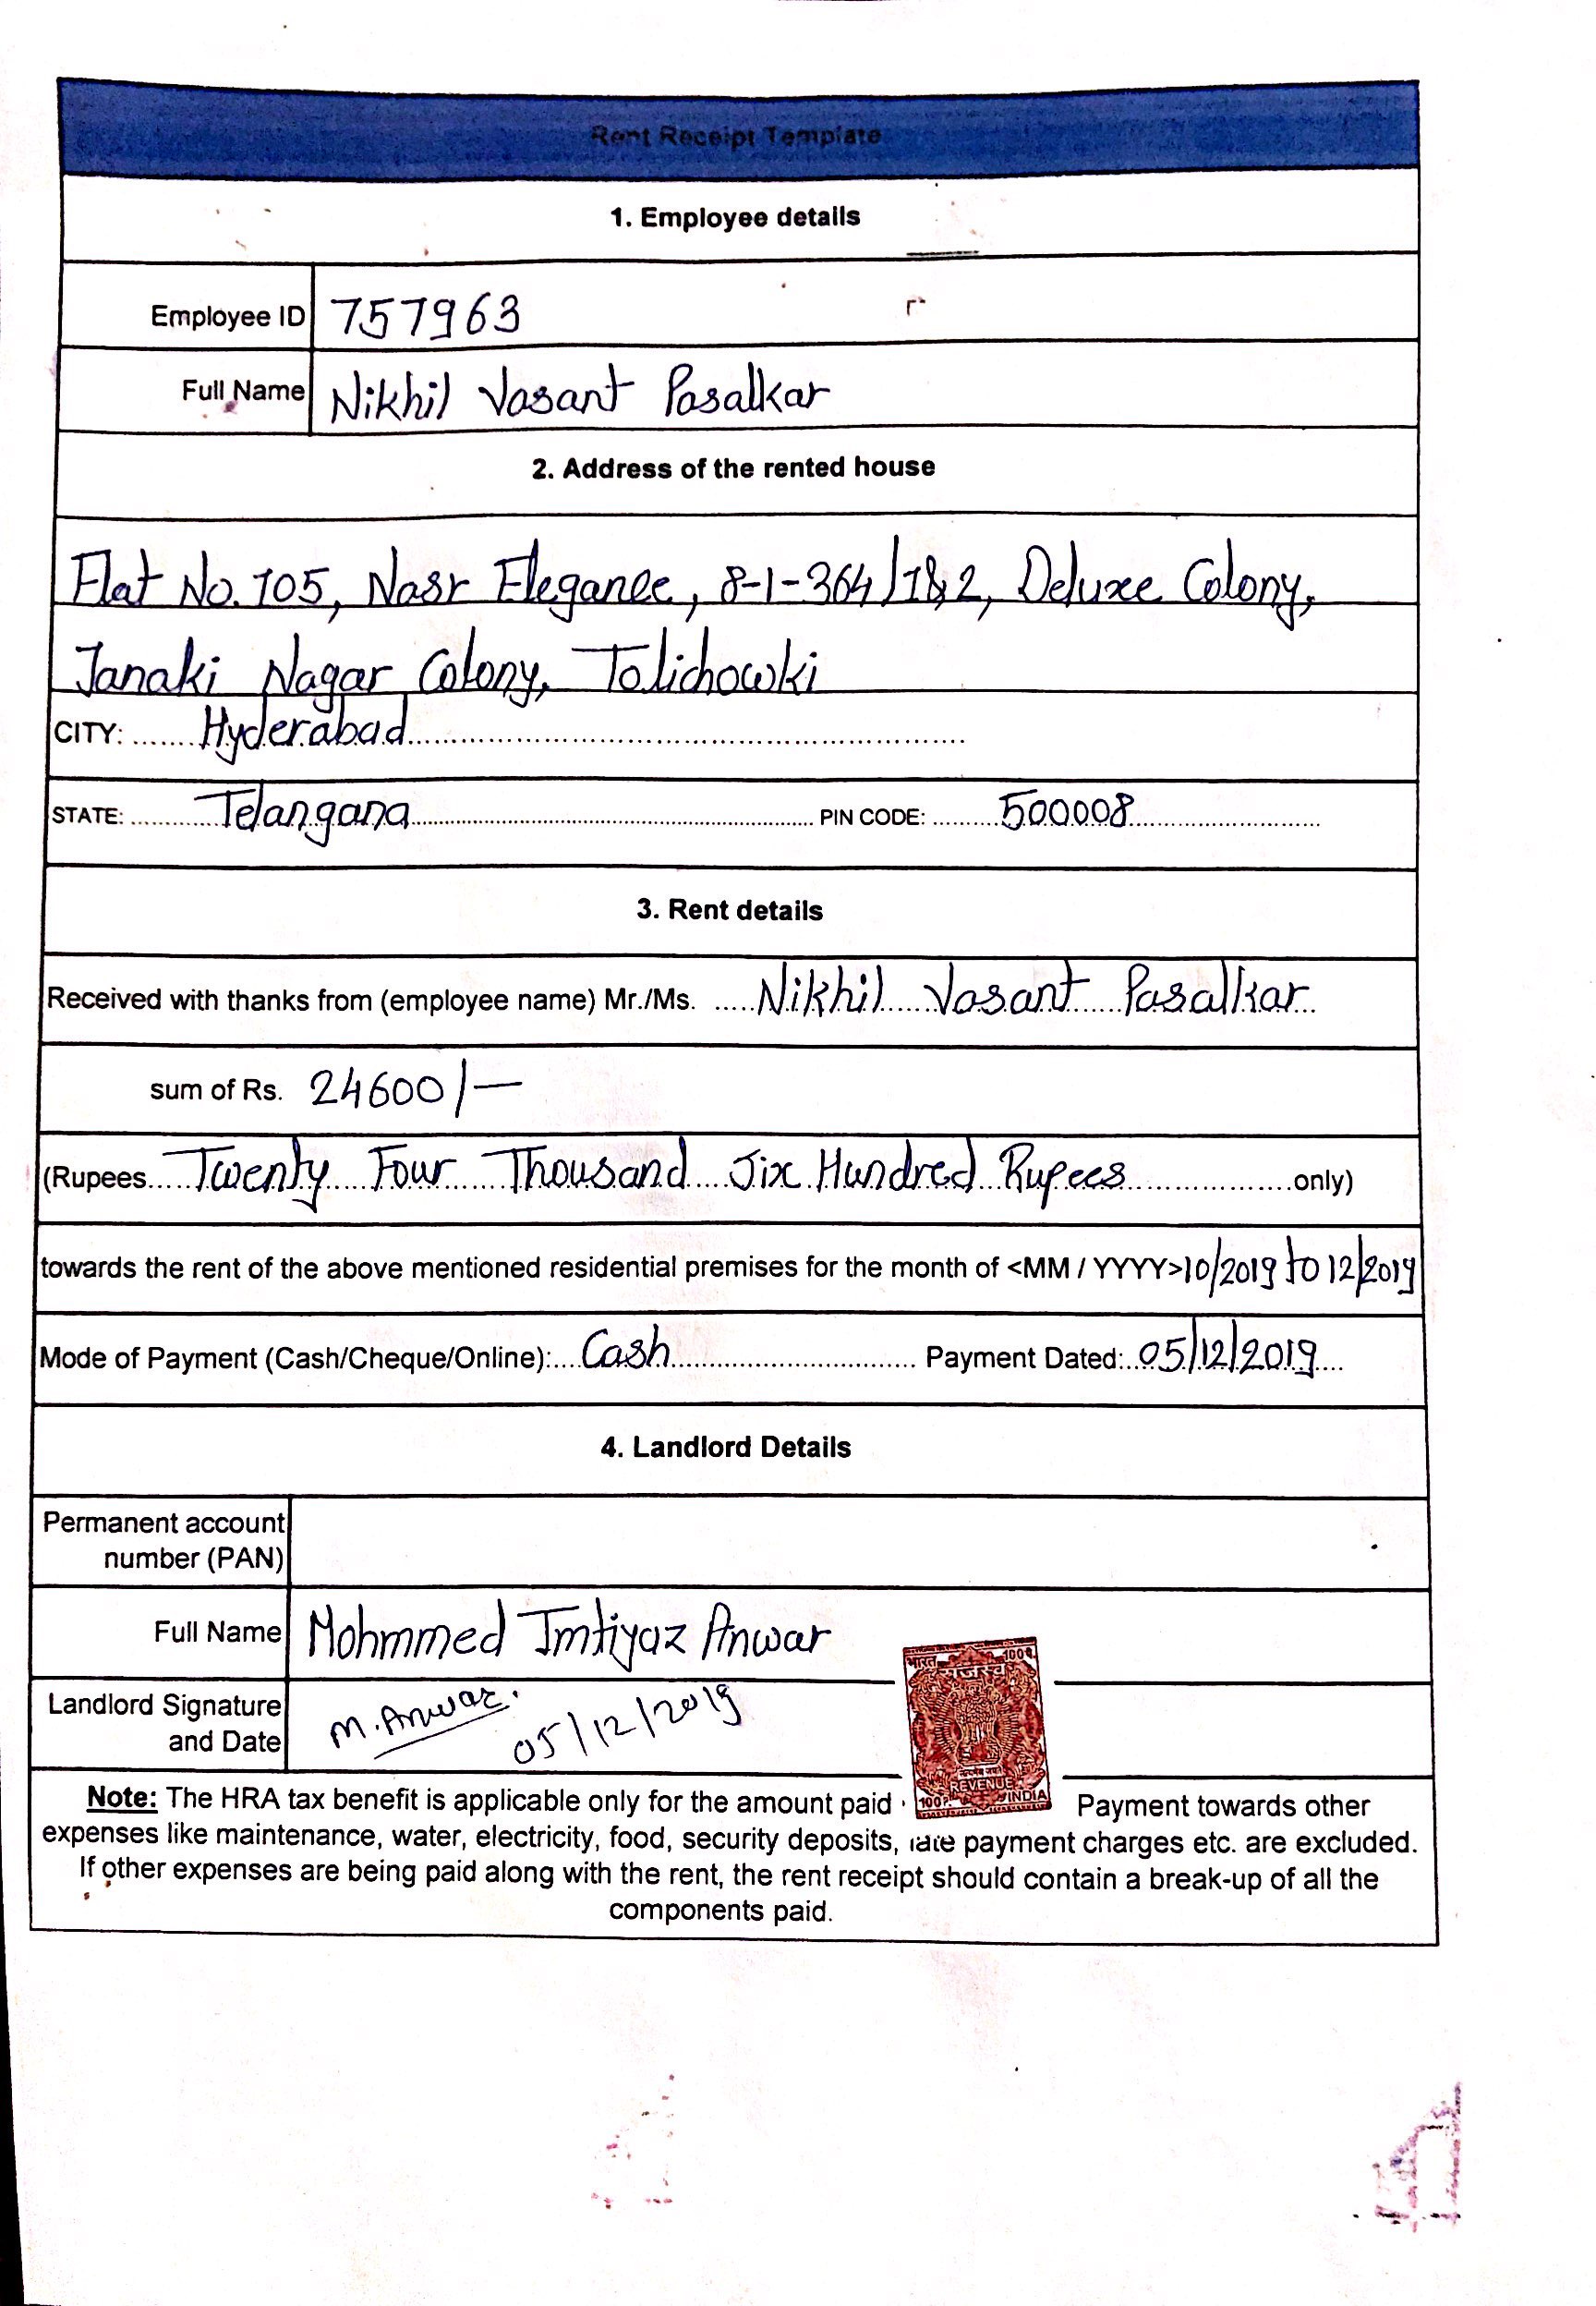 Rent Receipt Template
1. Employee details
Employee ID 757963
Full Name Nikhil Vasant Pasalkar
2. Address of the rented house
Flat No. 105, Nasr Elegance, 8-1-364/1&2, Deluxe Colony,
Janaki Nagar Colony, Tolichowki
CITY: ....... Hyderabad
STATE: ............ Telangana PIN CODE: ......... 500008
3. Rent details
Received with thanks from (employee name) Mr./Ms. ..... Nikhil Vasant Pasalkar
sum of Rs. 24600/-
(Rupees..... Twenty Four Thousand Six Hundred Rupees ..................only)
towards the rent of the above mentioned residential premises for the month of <MM / YYYY>10/2019 to 12/2019
Mode of Payment (Cash/Cheque/Online):.... Cash Payment Dated:.. 05/12/2019
4. Landlord Details
Permanent account
number (PAN)
Full Name Mohmmed Imtiyaz Anwar
Landlord Signature M. Anwar.
and Date 05/12/2019
भारत 100
राजस्व
REVENUE
100 INDIA
Note: The HRA tax benefit is applicable only for the amount paid Payment towards other
expenses like maintenance, water, electricity, food, security deposits, late payment charges etc. are excluded.
If other expenses are being paid along with the rent, the rent receipt should contain a break-up of all the
components paid.